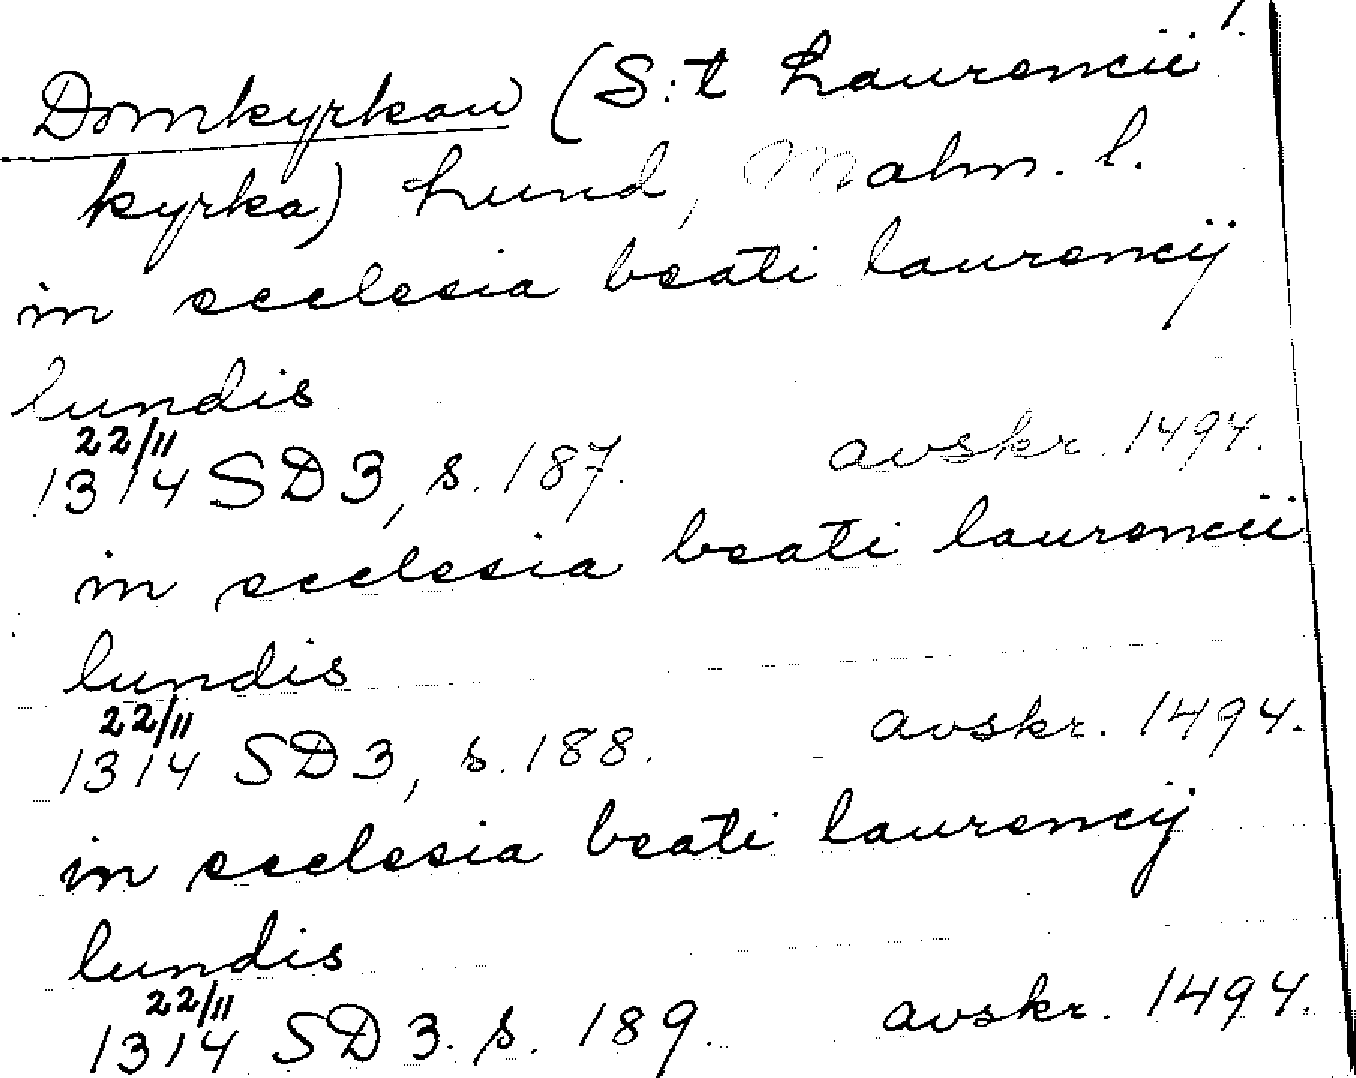 1.
Domkyrkan (S:t Laurencii
kyrka) Lund, Malm. l.
in ecclesia beati laurencij
lundis
22/11
1314 SD 3, s. 187. avskr. 1494.
in ecclesia beati laurencii
lundis
22/11
1314 SD 3, s. 188. avskr. 1494.
in ecclesia beati laurencij
lundis
22/11
1314 SD 3. s. 189. avskr. 1494.